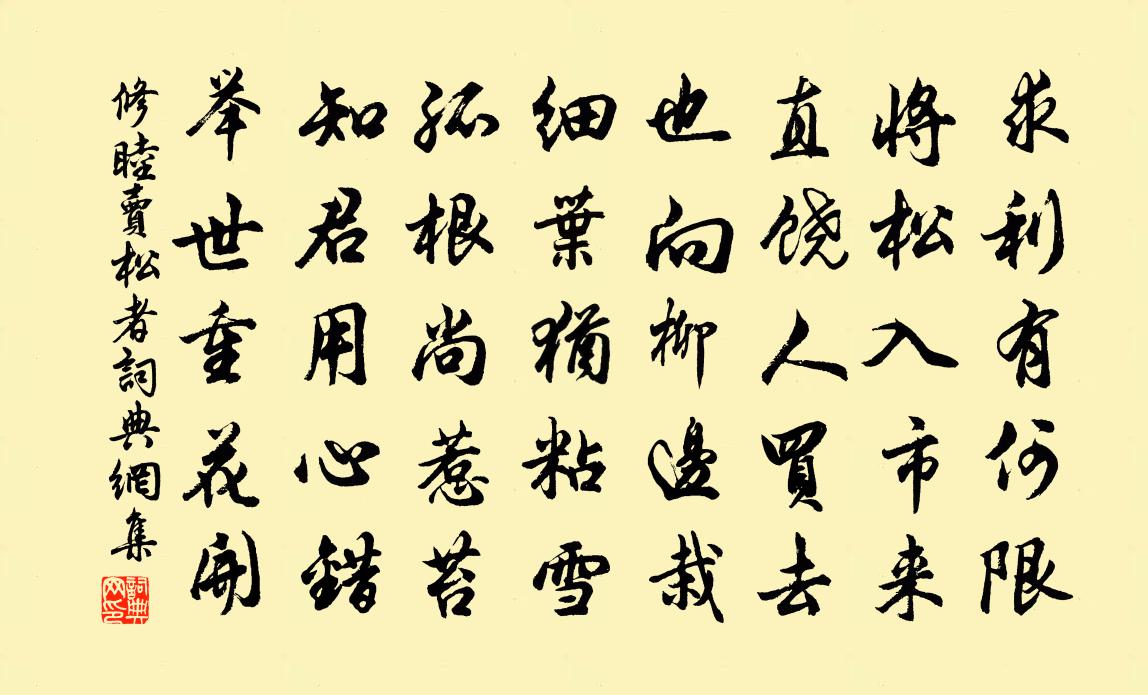 求利有何限
将松入市来
直饶人買去
也向柳邊栽
细葉猶粘雪
孤根尚惹苔
知君用心錯
举世重花開
修睦賣松者詞典網集
詞典網印